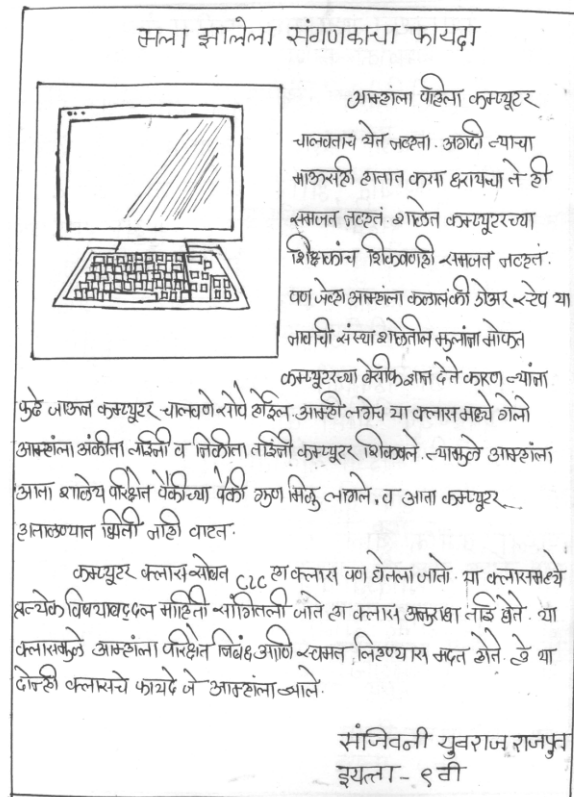 मला झालेला संगणकाचा फायदा
आम्हांला पहिला कम्प्युटर
चालवताच येत नव्हता. अगदी त्याचा
माऊसही हातात कसा धरायचा ते ही
समजत नव्हतं. शाळेत कम्प्युटरच्या
शिक्षकांच शिकवणही समजत नव्हतं.
पण जेव्हा आम्हांला कळालं की डोअर स्टेप या
नावाची संस्था शाळेतील मुलांना मोफत
कम्प्युटरच्या बेसीक ज्ञान देते कारण त्यांना
पुढे जाऊन कम्प्युटर चालवणे सोपे होईल. आम्ही लगेच या क्लास मध्ये गेलो
आम्हांला अंकीता ताईंनी व निकीता ताईंनी कम्प्युटर शिकवले. त्यामुळे आम्हांला
आता शालेय परिक्षेत पैकीच्या पैकी गुण मिळु लागले, व आता कम्प्युटर
हाताळण्यात भिती नाही वाटत.
कम्प्युटर क्लास सोबत CLC हा क्लास पण घेतला जातो. या क्लासमध्ये
प्रत्येक विषयाबद्दल माहिती सांगितली जाते हा क्लास अनुराधा ताई घेते. या
क्लासमुळे आम्हांला परिक्षेत निबंध आणि स्वमत लिहण्यास मदत होते. हे या
दोन्ही क्लासचे फायदे जे आम्हांला झाले.
संजिवनी युवराज राजपुत
इयत्ता - ९ वी